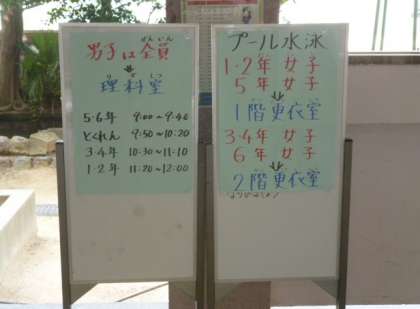 男子は全員
ぜんいん
↓
理科室
5・6年 9:00〜9:40
とくれん 9:50〜10:20
3・4年 10:30〜11:10
1・2年 11:20〜12:00
プール水泳
1・2年 女子
5年 女子
↓
1階更衣室
3・4年 女子
6年 女子
↓
2階更衣室